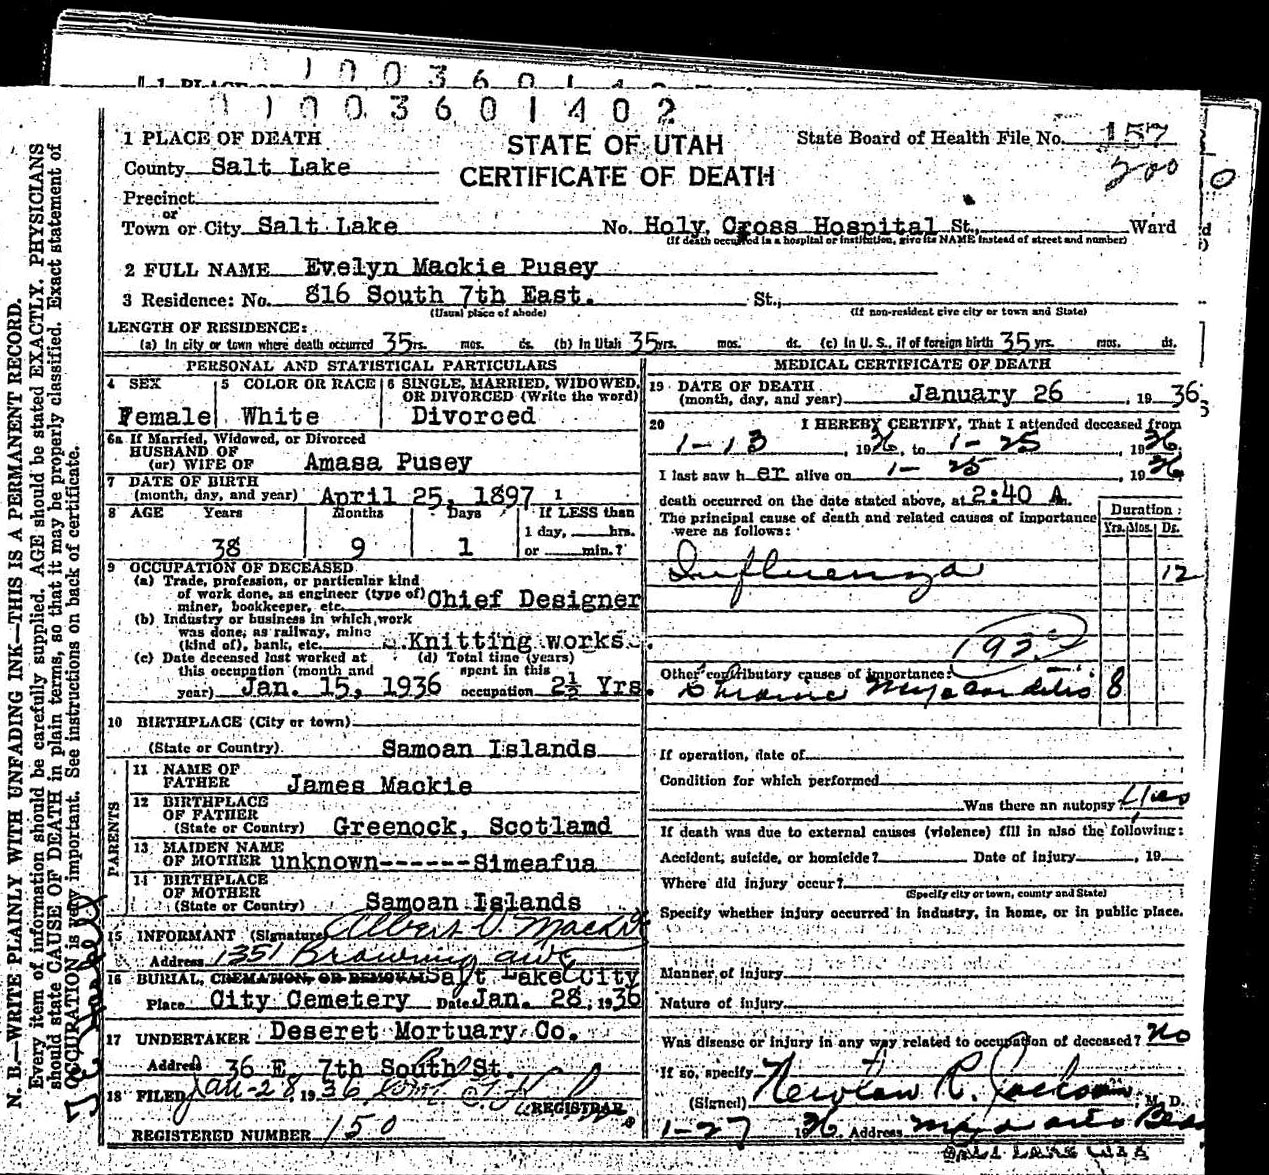 1 0 0 3 6 0 1 4 0 2
0 1 0 0 3 6 0 1 4 0 2
1 PLACE OF DEATH
STATE OF UTAH
CERTIFICATE OF DEATH
State Board of Health File No. 157
200
0
County Salt Lake
Precinct
or
Town or City Salt Lake No. Holy Cross Hospital St., Ward
(If death occurred in a hospital or institution, give its NAME instead of street and number)
2 FULL NAME Evelyn Mackie Pusey
3 Residence: No. 816 South 7th East. St.,
(Usual place of abode) (If non-resident give city or town and State)
LENGTH OF RESIDENCE:
(a) In city or town where death occurred 35 yrs. mos. ds. (b) in Utah 35 yrs. mos. ds. (c) In U. S., if of foreign birth 35 yrs. mos. ds.
PERSONAL AND STATISTICAL PARTICULARS
4 SEX
Female
5 COLOR OR RACE
White
6 SINGLE, MARRIED, WIDOWED,
OR DIVORCED (Write the word)
Divorced
6a If Married, Widowed, or Divorced
HUSBAND OF
(or) WIFE OF Amasa Pusey
7 DATE OF BIRTH
(month, day, and year) April 25, 1897
8 AGE Years Months Days If LESS than
1 day, hrs.
38 9 1 or min.?
9 OCCUPATION OF DECEASED
(a) Trade, profession, or particular kind
of work done, as engineer (type of)
miner, bookkeeper, etc. Chief Designer
(b) Industry or business in which work
was done, as railway, mine
(kind of), bank, etc. Knitting works.
(c) Date deceased last worked at
this occupation (month and
year) Jan. 15, 1936
(d) Total time (years)
spent in this
occupation 2½ Yrs.
10 BIRTHPLACE (City or town)
(State or Country) Samoan Islands
PARENTS
11 NAME OF
FATHER James Mackie
12 BIRTHPLACE
OF FATHER
(State or Country) Greenock, Scotland
13 MAIDEN NAME
OF MOTHER unknown------Simeafua
14 BIRTHPLACE
OF MOTHER
(State or Country) Samoan Islands
15 INFORMANT (Signature) Albert V. Mackie
Address 1351 Browning ave
16 BURIAL, CREMATION, OR REMOVAL Salt Lake City
Place City Cemetery Date Jan. 28, 1936
17 UNDERTAKER Deseret Mortuary Co.
Address 36 E. 7th South St.
18 FILED Jan-28 1936
REGISTRAR
REGISTERED NUMBER 150
MEDICAL CERTIFICATE OF DEATH
19 DATE OF DEATH
(month, day, and year) January 26, 1936
20 I HEREBY CERTIFY, That I attended deceased from
1-13, 1936, to 1-25, 1936
I last saw her alive on 1-25, 1936
death occurred on the date stated above, at 2:40 A.m.
The principal cause of death and related causes of importance
were as follows:
Duration:
Yrs. Mos. Ds.
Influenza 12
Other contributory causes of importance:
Chronic Myocarditis 8
If operation, date of
Condition for which performed
Was there an autopsy Yes
If death was due to external causes (violence) fill in also the following:
Accident, suicide, or homicide? Date of injury, 19
Where did injury occur?
(Specify city or town, county and State)
Specify whether injury occurred in industry, in home, or in public place.
Manner of injury
Nature of injury
Was disease or injury in any way related to occupation of deceased? No
If so, specify
(Signed) Newton R. Jackson M. D.
1-27 1936 Address
N. B.—WRITE PLAINLY WITH UNFADING INK—THIS IS A PERMANENT RECORD.
Every item of information should be carefully supplied. AGE should be stated EXACTLY. PHYSICIANS
should state CAUSE OF DEATH in plain terms, so that it may be properly classified. Exact statement of
OCCUPATION is very important. See instructions on back of certificate.